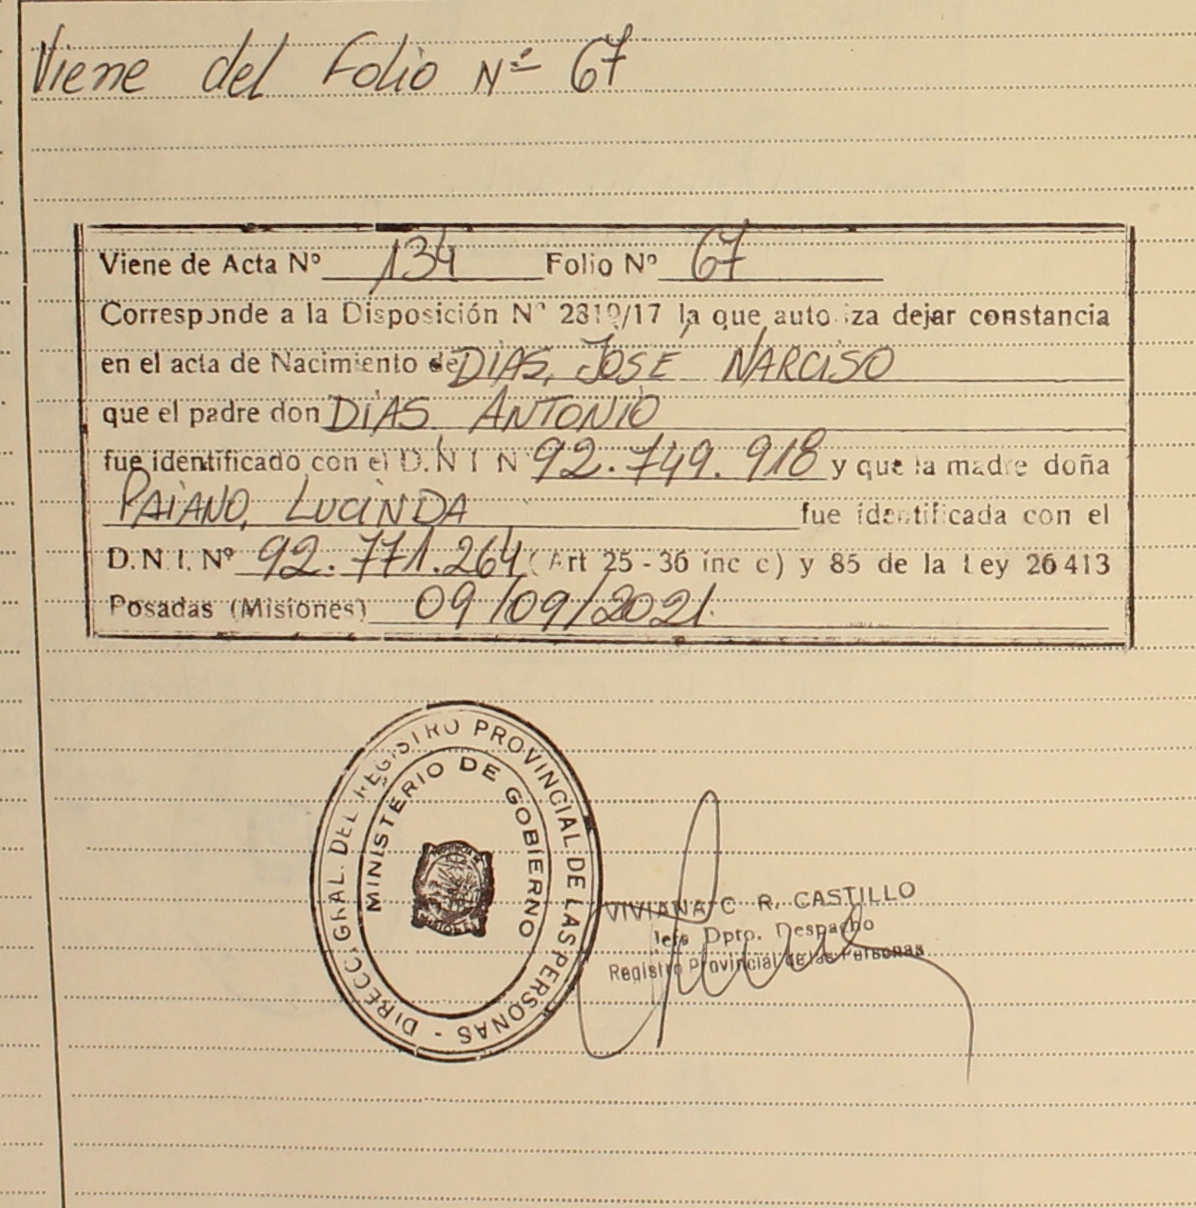 Viene del Folio Nº 67
Viene de Acta Nº 134 Folio Nº 67
Corresponde a la Disposición Nº 2819/17 la que autoriza dejar constancia
en el acta de Nacimiento de DIAS, JOSÉ NARCISO
que el padre don DIAS ANTONIO
fue identificado con el D.N.I Nº 92.749.918 y que la madre doña
PAIANO, LUCINDA fue identificada con el
D.N.I. Nº 92.771.264 (Art 25 - 36 inc c) y 85 de la Ley 26413
Posadas (Misiones) 09/09/2021.
DIRECC. GRAL. DEL REGISTRO PROVINCIAL DE LAS PERSONAS -
MINISTERIO DE GOBIERNO
VIVIANA C. R. CASTILLO
Jefe Dpto. Despacho
Registro Provincial de las Personas